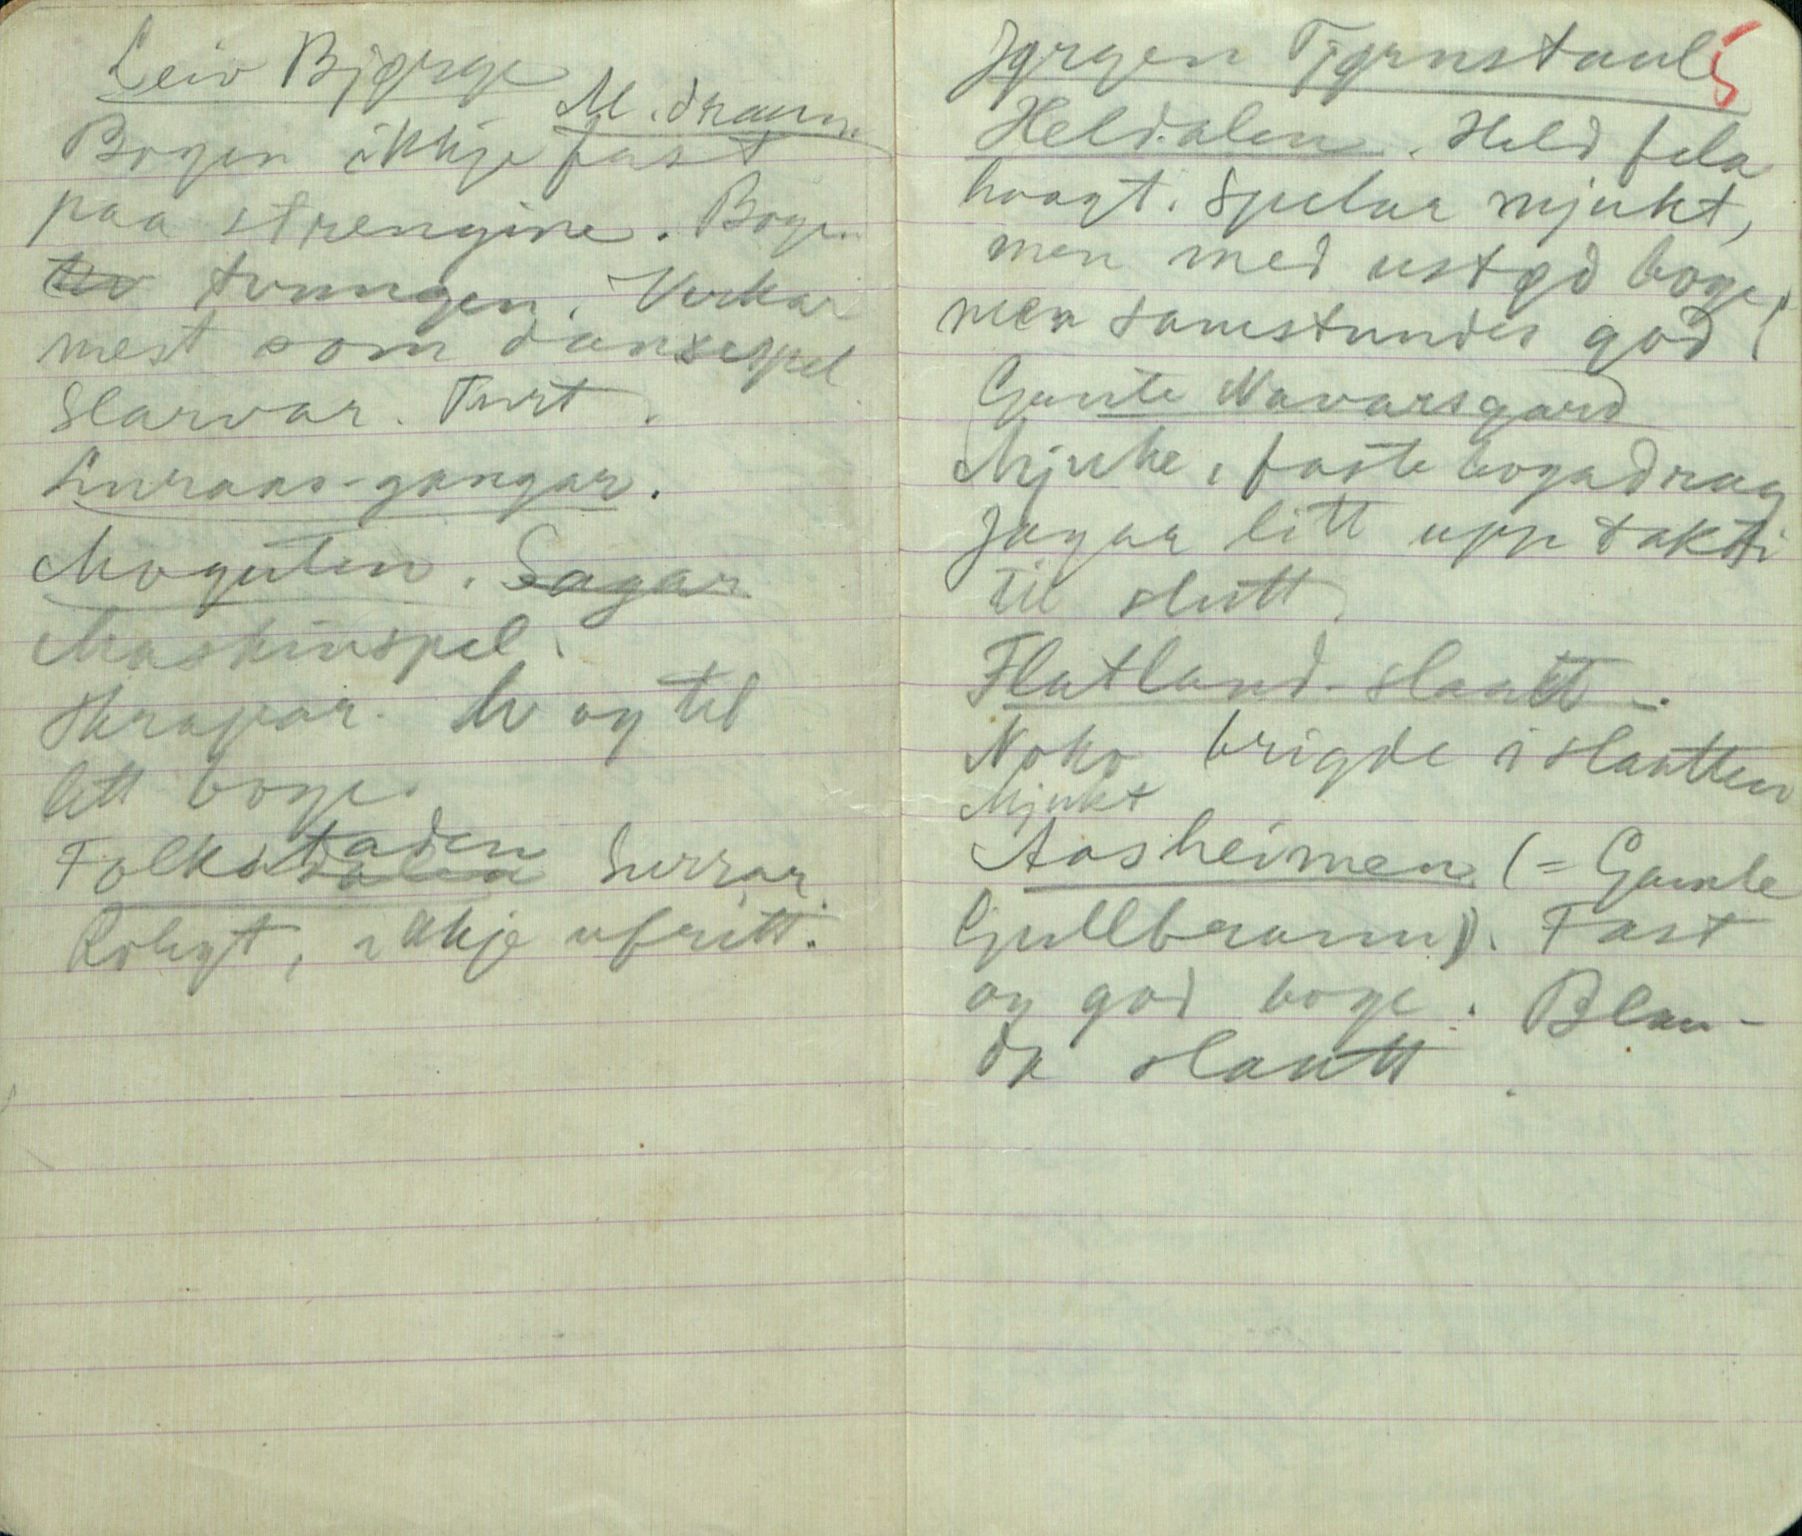 Leiv Bjørge
M. draum.
Bogen ikkje fast
paa strengine. Bogen
tvungen. Verkar
mest som dansespel
Slarvar. Turt.
Luraas-gangar.
Moguten. Sagar
Maskinspel.
Skrapar. Av og til
lett boge.
Følkdstaden Surrar.
Rolegt, ikkje ufritt.
Jørgen Tjørnstaul
5
Heldalen. Held fela
høgt. Spelar mjukt,
men med ustød boge,
men samstundes god
Gamle Navarsgard
Mjuke, faste bogadrag
Jagar litt upp takti
til slutt.
Flatland-slaatt.
Noko brigde i slaatten
Mjukt
Aasheimen (= Gamle
Gullbraand). Fast
og god boge. Blan-
da slaatt.